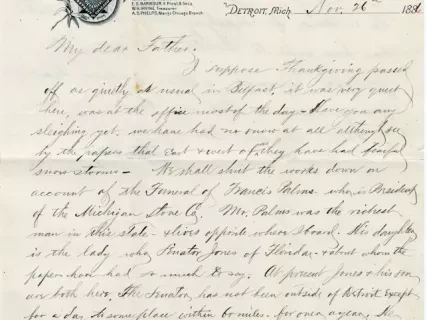 E. S. BARBOUR, V. Pres't & Sec'y.
W. H. IRVINE, Treasurer.
A. S. PHELPS, Man'g'r Chicago Branch
DETROIT, Mich. Nov. 26th 1886
My dear Father.
I suppose Thanksgiving passed
off as quietly as usual in Belfast. it was very quiet
here, was at the office most of the day - Have you any
sleighing yet. we have had no snow at all although see
by the papers that East & west of, they have had fearful
snow storms - We shall shut the works down on
account of the Funeral of Francis Palms who is President
of the Michigan Stove Co. Mr. Palms was the richest
man in this state - & lives opposite where I board. His daughter
is the lady who Senator Jones of Florida - & about whom the
papers have had so much to say. At present Jones & his son
are both here. The Senator has not been outside of Detroit Except
for a day to some place within 60 miles - for over a year. He